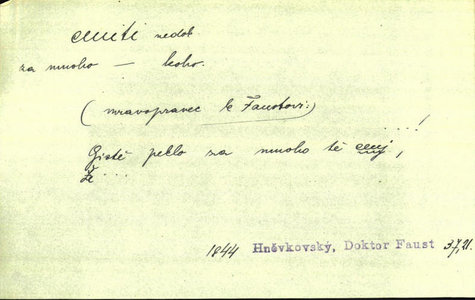 cniti nedok
za mnoho — koho.
(mravopravec k Faustovi:)
. . . . !
Gistě peklo za mnoho tě cnj,
Ž . . . .
1844 Hněvkovský, Doktor Faust 37,21.